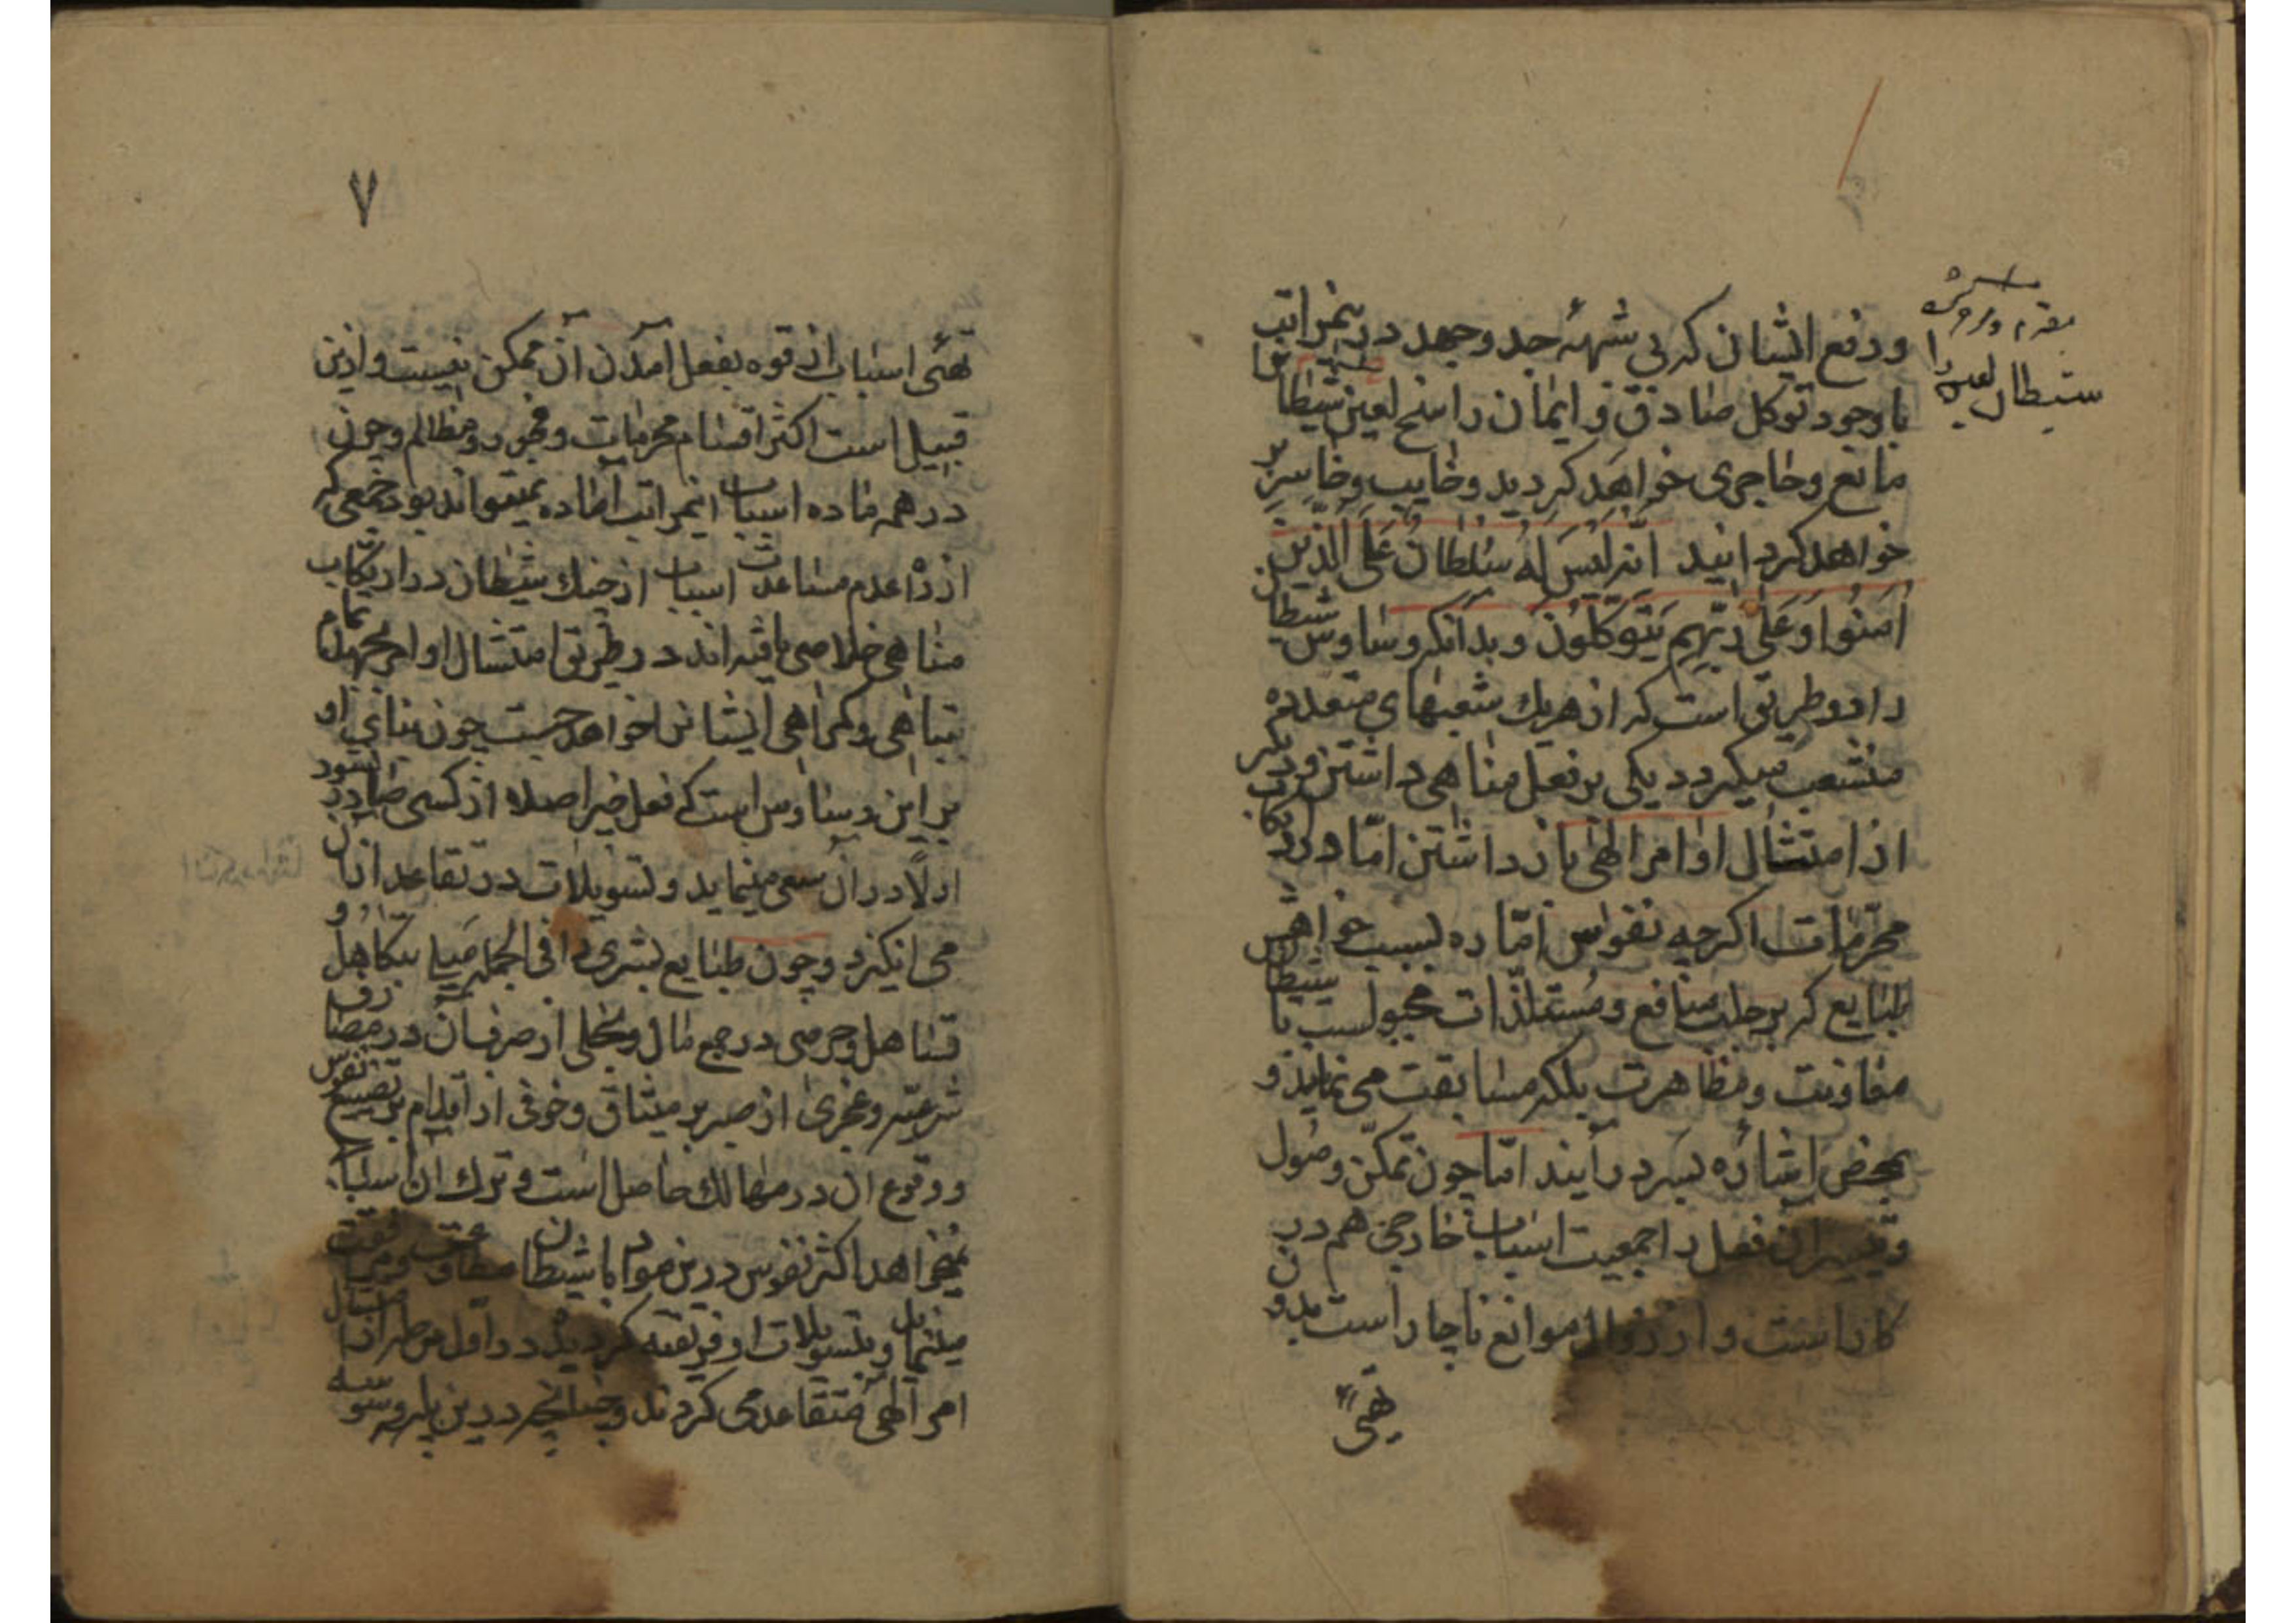 ودفع ایشان که بی شبهه جد وجهد درینمراتب
با وجود توکل صادق و ایمان راسخ لعین شیطان
مانع وحاجری خواهد کردید وخایب وخاسر
خواهد کردانید انه لَیْسَ لَهُ سُلطانٌ عَلَی الَّذین
اٰمَنُوا وَعَلیٰ رَبِّهِم یَتَوکَّلُونَ وبدانکه وساوس شیطان
را دو طریق است که از هریك شعبهای متعدده
منشعب میکردد یکی بر فعل مناهی داشتن و دیگر
از امتثال اوامر الهی باز داشتن امّا در ارتکاب
محرّمات اکرچه نفوس امّاره بسبب خواهش
طبایع که بر جلب منافع ومستلذّات مجبولست با شیطان
معاونت ومظاهرت بلکه مسابقت می نماید و
بمحض اشاره بسر در آیند امّا چون تمکّن وصول
وتیسیر ان فعل را جمعیت اسباب خارجی هم درین
کار است و از زوال موانع ناچار است بدون
تهیّ
شیطان لعین
٧
تهیّ اسباب از قوه بفعل آمدن آن ممکن نیست وازین
قبیل است اکثر اقسام محرمات وفجور ومظالم وچون
در همه ماده اسباب اینمراتب آماده نمیتواند بود جمعی که
از راه عدم مساعدت اسباب از چنك شیطان در ارتکاب
مناهی خلاصی یافته اند در طریق امتثال اوامر بجهة
تباهی وکمراهی ایشان خواهد جست چون بنای او
بر این وساوس است که فعل خیر اصلا از کسی صادر نشود
اولًا در ان سعی مینماید وتسویلات در تقاعد ازان
می انکیزد وچون طبایع بشری را فی الجمله میل بتکاهل و
تساهل وحرصی در جمع مال وبخلی از صرف آن در مصارف
شرعیّه وعجزی از صبر بر مشاق وخوفی از اقدام بر تضییع نفوس
ووقوع ان در مهالك حاصل است وترك ان اسباب
نمیخواهد اکثر نفوس درین مواد با شیطان مطاوعت ومرافقت
مینماید وبتسویلات او فریفته کردیده در اول مرحله از امتثال
امر الهی متقاعد می کردند وچنانچه درین باره وسوسه